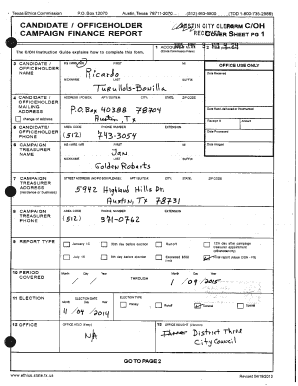 Texas Ethics Commission P.O. Box 12070 Austin, Texas 78711-2070 (512) 463-5800 (TDD 1-800-735-2989)
CANDIDATE / OFFICEHOLDER
CAMPAIGN FINANCE REPORT
AUSTIN CITY CLERK
RECEIVED
FORM C/OH
COVER SHEET PG 1
The C/OH Instruction Guide explains how to complete this form.
3 CANDIDATE / OFFICEHOLDER NAME
FIRST MI
Ricardo
NICKNAME LAST SUFFIX
Turullols-Bonilla
OFFICE USE ONLY
Date Received
4 CANDIDATE / OFFICEHOLDER MAILING ADDRESS
change of address
ADDRESS / PO BOX; APT / SUITE #; CITY; STATE; ZIP CODE
P.O. Box 40388 78704
Austin Tx
Date Hand-delivered or Postmarked
Receipt # Amount
Date Processed
Date Imaged
5 CANDIDATE / OFFICEHOLDER PHONE
AREA CODE PHONE NUMBER EXTENSION
(512) 743-3054
6 CAMPAIGN TREASURER NAME
FIRST MI
Jan
NICKNAME LAST SUFFIX
Golden Roberts
7 CAMPAIGN TREASURER ADDRESS
(residence or business)
STREET ADDRESS (NO PO BOX PLEASE); APT / SUITE #; CITY; STATE; ZIP CODE
5942 Highland Hills Dr.
Austin, Tx 78731
8 CAMPAIGN TREASURER PHONE
AREA CODE PHONE NUMBER EXTENSION
(512) 371-0762
9 REPORT TYPE
January 15 30th day before election Runoff 15th day after campaign treasurer appointment (officeholder only)
July 15 8th day before election Exceeded $500 limit Final report
10 PERIOD COVERED
Month Day Year THROUGH Month Day Year
1 / 09 / 2015
11 ELECTION
ELECTION DATE
Month Day Year
11 / 04 / 2014
ELECTION TYPE
Primary Runoff General Special
12 OFFICE
OFFICE HELD (if any)
NA
13 OFFICE SOUGHT (if known)
District Three
City Council
GO TO PAGE 2
www.ethics.state.tx.us